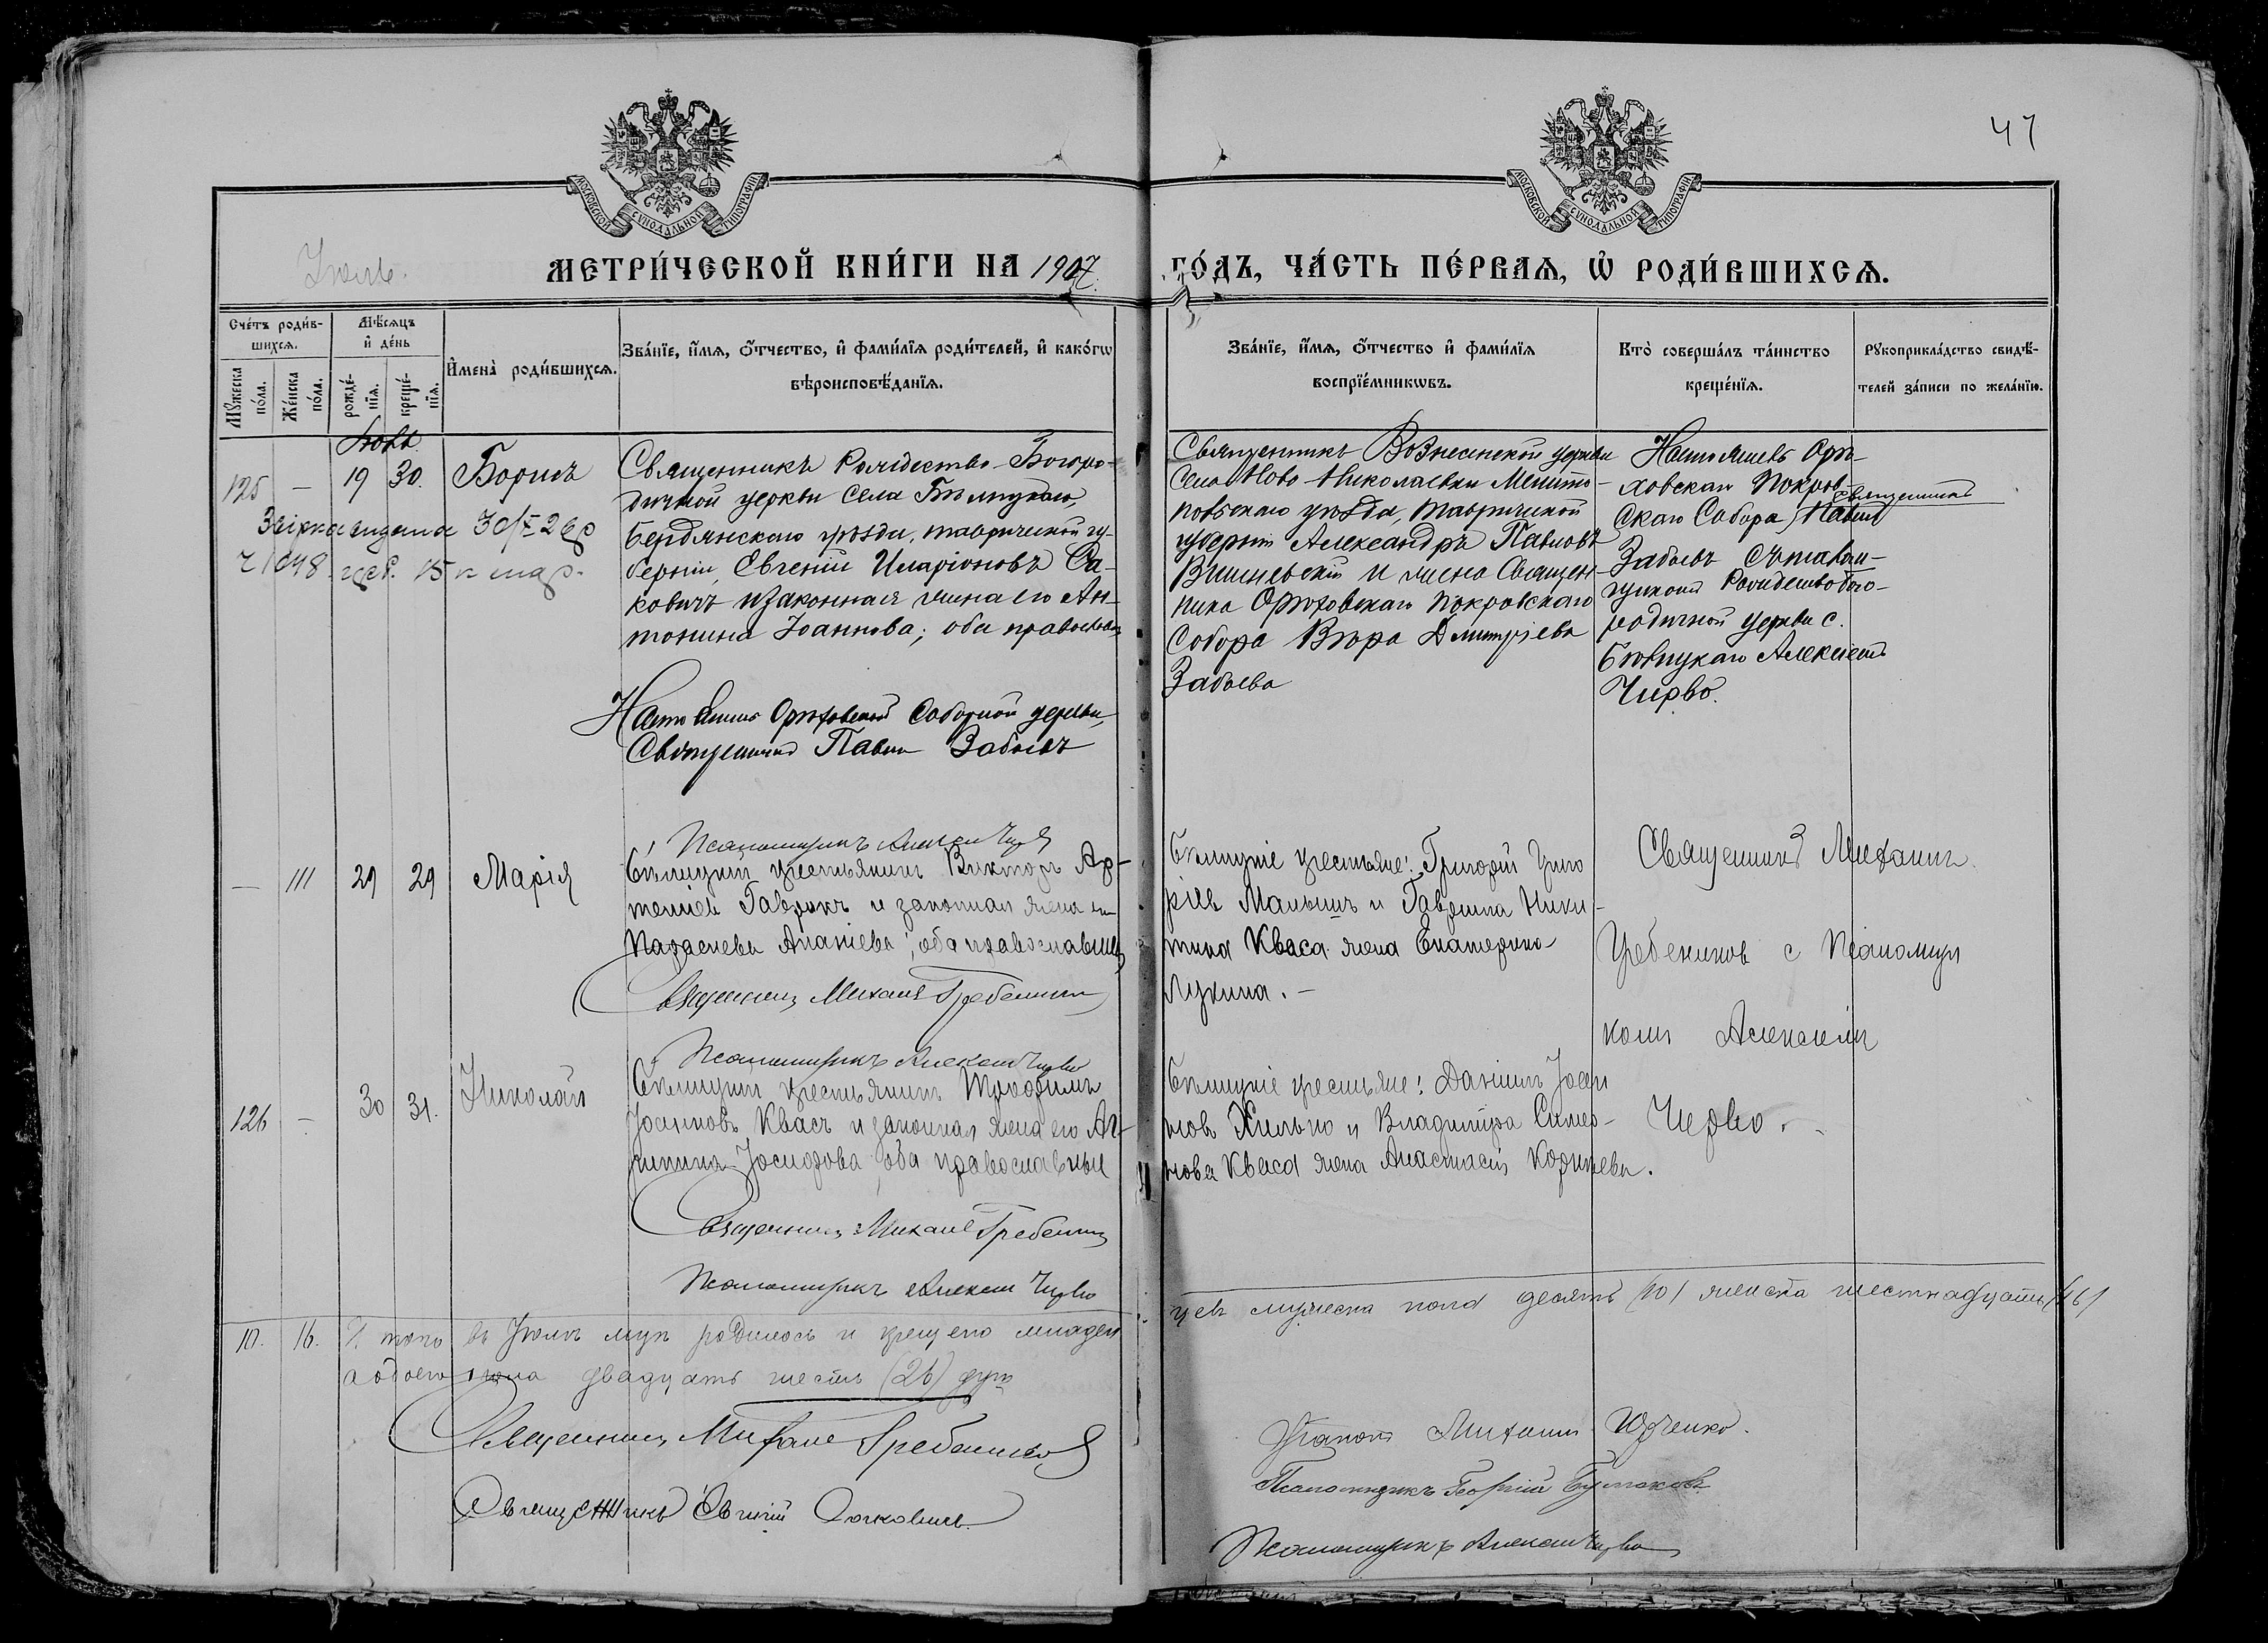 47
МОСКОВСКОЙ СУНОДАЛЬНОЙ ТИПОГРАФІИ
МОСКОВСКОЙ СУНОДАЛЬНОЙ ТИПОГРАФІИ
Іюль.
МЕТРИ́ЧЕСКОЙ КНИ́ГИ НА 1907
ГО́ДЪ, ЧА́СТЬ ПЕ́РВАЯ, Ѡ҆ РОДИ́ВШИХСЯ.
Сче́тъ роди́в-
шихся.
Мꙋ́жеска по́ла.
Же́нска по́ла.
Мѣ́сяцъ
и҆ де́нь
рожде́-
нїя.
креще́-
нїя.
И҆мена̀ роди́вшихся.
Зва́нїе, и҆́мя, ѻ҆́тчество, и҆ фами́лїя роди́телей, и҆ како́гѡ
вѣроисповѣ́данїя.
Зва́нїе, и҆́мя, ѻ҆́тчество и҆ фами́лїя
воспрїе́мникѡвъ.
Кто̀ соверша́лъ та́инство
креще́нїя.
Рꙋкоприкла́дство свидѣ́-
телей за́писи по жела́нїю.
Іюль
125 — 19 30. Борисъ
Священникъ Рождество-Богоро-
дичной церкви села Бѣлицкаго,
Бердянскаго уѣзда, таврической гу-
берніи, Евгеній Иларіоновъ Са-
ковичъ и законная жена его Ан-
тонина Іоаннова; оба православн
Настоятель Орѣховской Соборной церкви,
Священникъ Павелъ Забаевъ
Псаломщикъ Алексѣй Чирво
Священникъ Вознесенской церкви
села Ново-Николаевки Мелито-
польскаго уѣзда, таврической
губерніи Александръ Павловъ
Вишневскій и жена Священ-
ника Орѣховскаго Покровскаго
Собора Вѣра Дмитріева
Забаева
Настоятель Орѣ-
ховскаго Покров-
скаго Собора, священникъ Павелъ
Забаевъ съ псалом-
щикомъ Рождество Бого-
родичной церкви с.
Бѣлицкаго Алексѣемъ
Чирво.
— 111 29 29 Марія
Бѣлицкій крестьянинъ Викторъ Ар-
теміевъ Гаврикъ и законная жена его
Параскева Ананіева; оба православные
Священникъ Михаилъ Гребенников
Псаломщикъ Алексѣй Чирво
Бѣлицкіе крестьяне: Григорій Григо
ріевъ Малышъ и Гавріила Ники-
тина Кваса жена Екатерина
Лукина. —
Священникъ Михаилъ
Гребениковъ с Псаломщи
комъ Алексѣемъ
Чирво.
126 — 30 31. Николай
Бѣлицкій крестьянинъ Трофимъ
Іоанновъ Квасъ и законная жена его Аг-
рипина Іосифова; оба православные
Священникъ Михаилъ Гребенников
Псаломщикъ Алексѣй Чирво
Бѣлицкіе крестьяне: Даніилъ Іоан
новъ Хилько и Владиміра Симео-
нова Кваса жена Анастасія Корнѣева.
10. 16. Итого въ Іюлѣ мцѣ родилось и крещено младен
цевъ мужеска пола десять (10) женска шестнадцать (16)
а обоего пола двадцать шесть (26) душъ
Священникъ Михаилъ Гребенниковъ
Священникъ Евгеній Сакович
Діаконъ Михаилъ Юрченко.
Псаломщикъ Георгій Булаковъ
Псаломщикъ Алексѣй Чирво